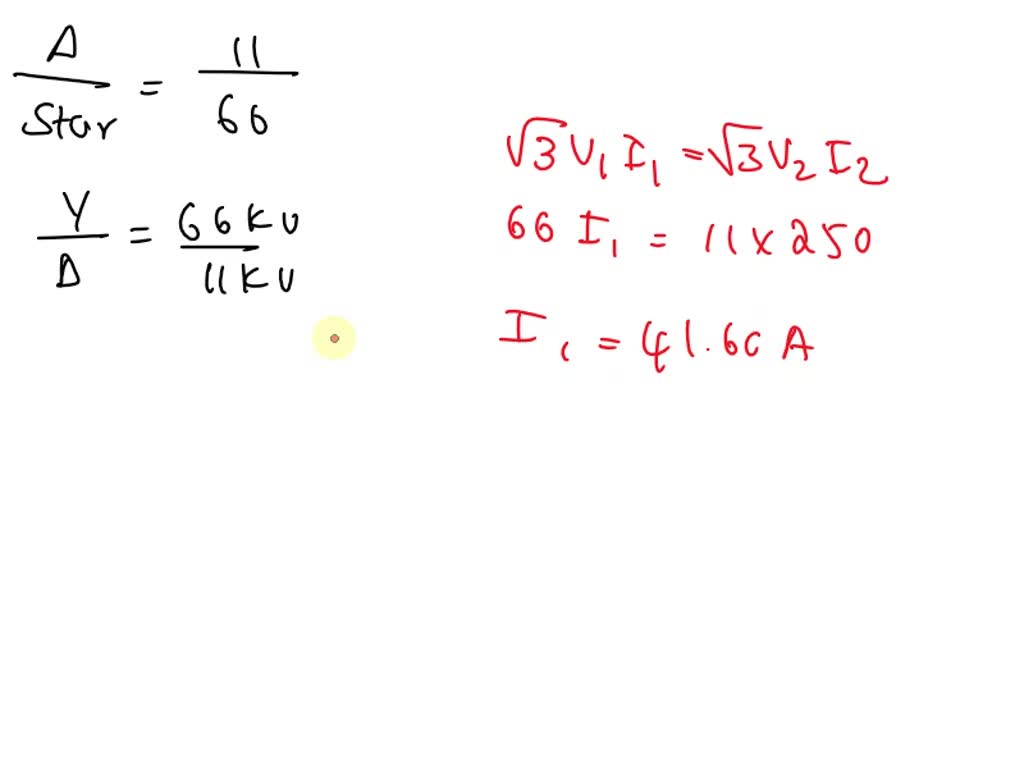 Δ/Star = 11/66
Y/Δ = 66KV/11KV
√3 V₁ I₁ = √3 V₂ I₂
66 I₁ = 11 × 250
I₁ = 41.60 A